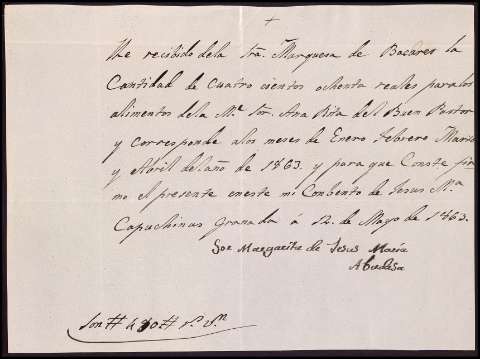 +
He recibido dela Sra. Marquesa de Bacares la
Cantidad de Cuatro cientos ochenta reales para los
alimentos dela Me. Sor. Ana Rita del Buen Pastor
y Corresponde alos meses de Enero Febrero Marzo
y Abril del año de 1863. y para que Conste fir
mo el presente eneste mi Conbento de Jesus Ma.
Capuchinas Granada á 12. de Mayo de 1863.
Sor Margarita de Jesus María
Abadesa
Son # 480 # rs. vn.